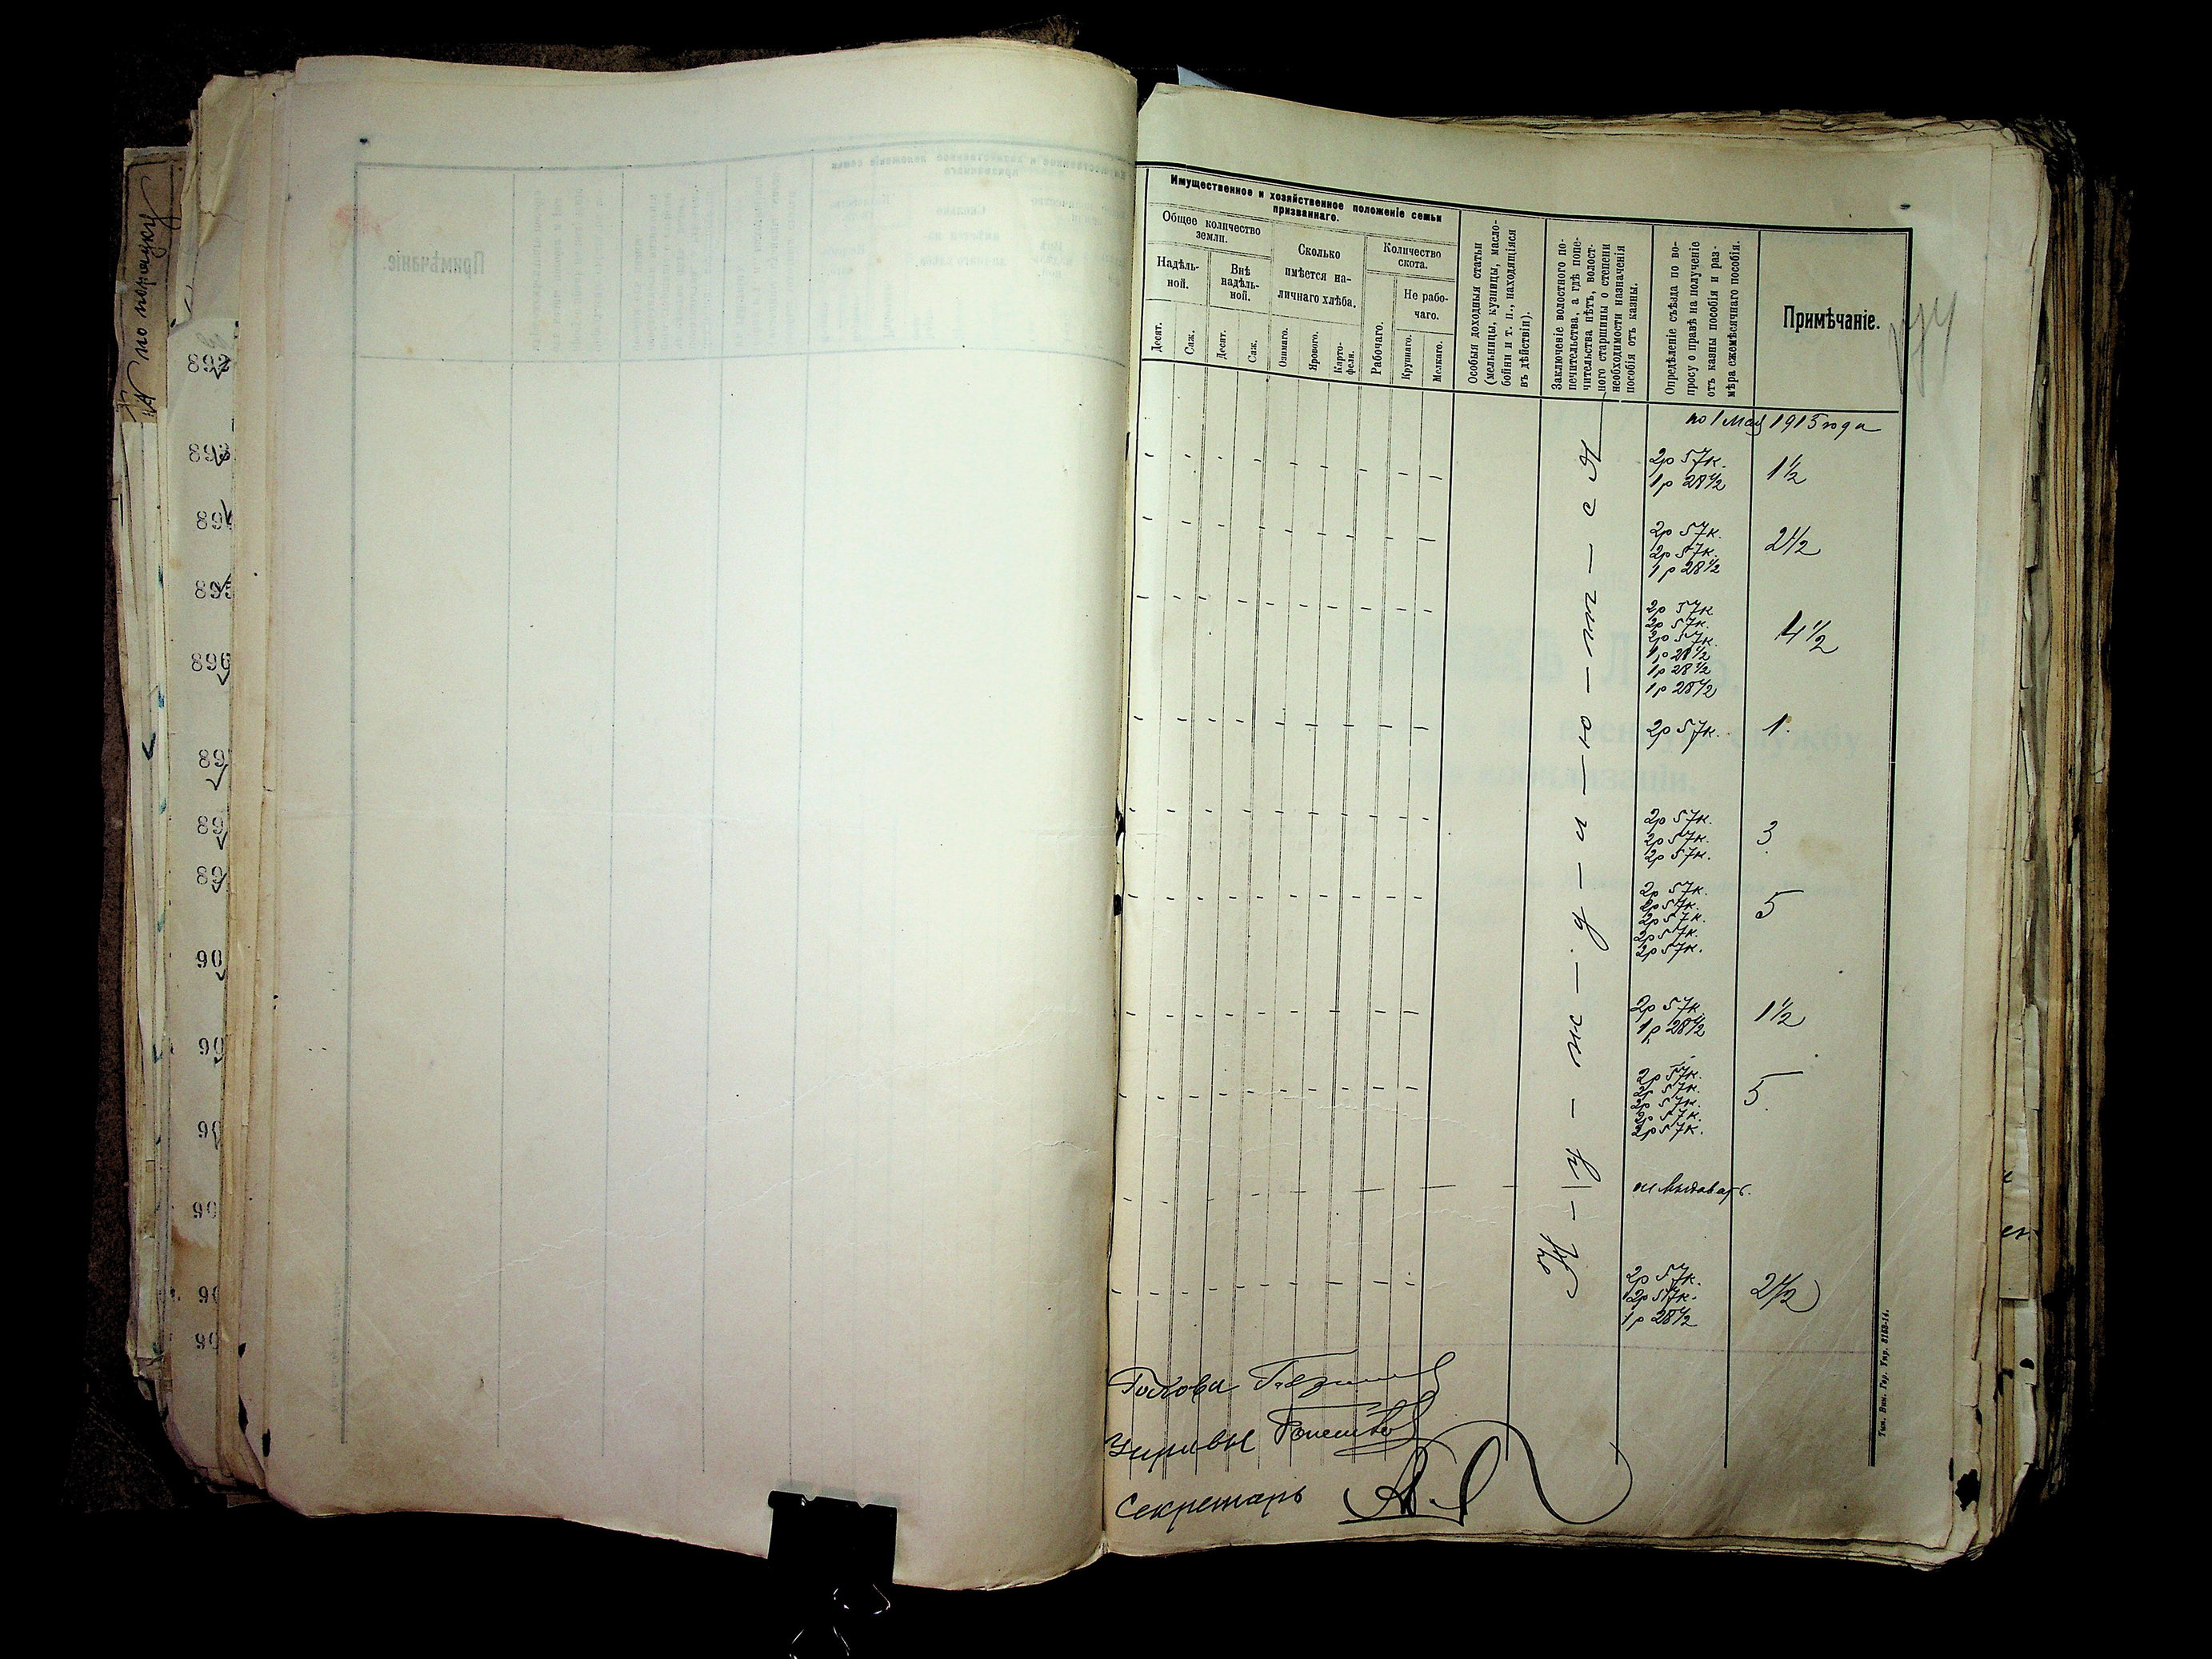 по порядку
892
893
895
896
Имущественное и хозяйственное положеніе семьи
призваннаго.
Общее количество
земли.
Надѣль-
ной.
Внѣ
надѣль-
ной.
Десят.
Саж.
Десят.
Саж.
Сколько
имѣется на-
личнаго хлѣба.
Озимаго.
Ярового.
Карто-
феля.
Количество
скота.
Рабочаго.
Не рабо-
чаго.
Крупнаго.
Мелкаго.
Особыя доходныя статьи
(мельницы, кузницы, масло-
бойни и т. п., находящіяся
въ дѣйствіи).
Заключеніе волостного по-
печительства, а гдѣ попе-
чительства нѣтъ, волост-
ного старшины о степени
необходимости назначенія
пособія отъ казны.
Опредѣленіе съѣзда по во-
просу о правѣ на полученіе
отъ казны пособія и раз-
мѣра ежемѣсячнаго пособія.
Примѣчаніе.
по 1 Мая 1915 года
Н - у - ж - д - а - ю - т - с я
2р 57к.
1р 28½
1½
2р 57к.
2р 57к.
1р 28½
2½
2р 57к
2р 57к.
2р 57к.
1р 28½
1р 28½
1р 28½
4½
2р 57к.
1.
2р 57к.
2р 57к.
2р 57к.
3
2р 57к.
2р 57к.
2р 57к.
2р 57к.
2р 57к.
5
2р 57к
1р 28½
1½
2р 57к.
2р 57к.
2р 57к.
2р 57к.
2р 57к.
5.
не выдавать.
2р 57к.
2р 57к.
1р 28½
2½
Голова
Управы
Секретарь
Тип. Вин. Гор. Упр. 8153-14.